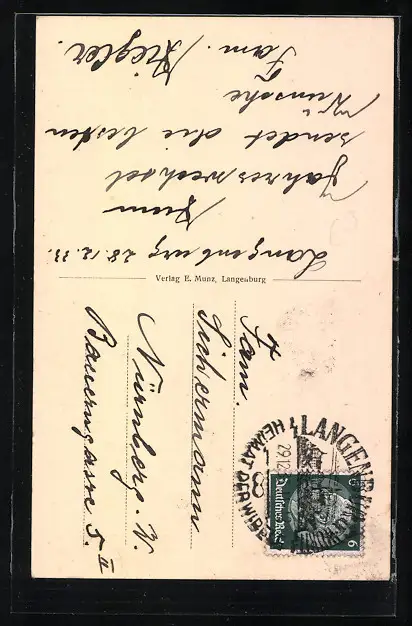 Langenburg 28.12.33.
Zum
Jahreswechsel
sendet die besten
Wünsche
Fam. Ziegler.
Verlag E. Munz, Langenburg
Fam.
Sichermann
Nürnberg. N.
Bauerngasse 5. II
LANGENBURG
HEIMAT DER WIBELE
29.12
8
Deutsches Reich
6